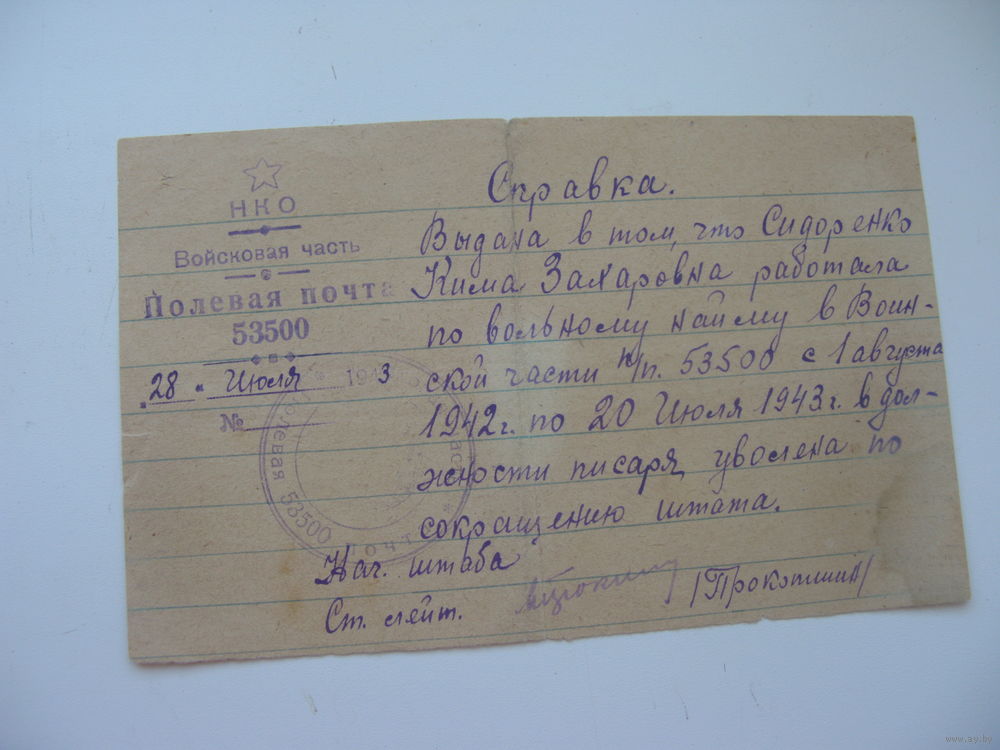 НКО
Войсковая часть
Полевая почта
53500
„28 " Июля 1943
№
Справка.
Выдана в том, что Сидоренко
Кима Захаровна работала
по вольному найму в Воин-
ской части п/п. 53500 с 1 августа
1942г. по 20 Июля 1943г. в дол-
жности писаря, уволена по
сокращению штата.
Нач. штаба
Ст. лейт. /Прокопшин/
Полевая 53500 почта
www.ay.by